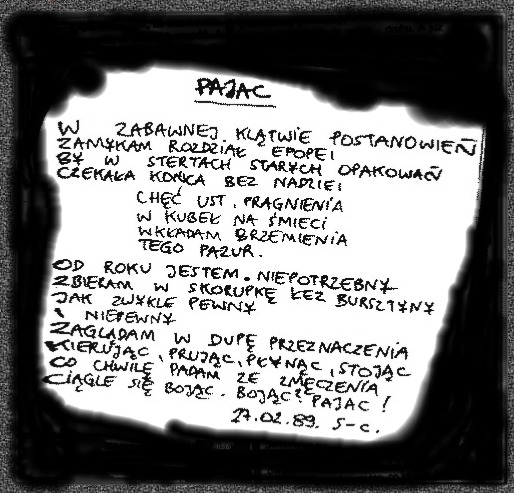 PAJAC
W ZABAWNEJ KLĄTWIE POSTANOWIEŃ
ZAMYKAM ROZDZIAŁ EPOPEI
BY W STERTACH STARYCH OPAKOWAŃ
CZEKAŁA KOŃCA BEZ NADZIEI
CHĘĆ UST, PRAGNIENIA
W KUBEŁ NA ŚMIECI
WKŁADAM BRZEMIENIA
TEGO PAZUR.
OD ROKU JESTEM. NIEPOTRZEBNY
ZBIERAM W SKORUPKĘ ŁEZ BURSZTYNY
JAK ZWYKLE PEWNY
I NIEPEWNY
ZAGLĄDAM W DUPĘ PRZEZNACZENIA
KIERUJĄC, PRUJĄC, PŁYNĄC, STOJĄC
CO CHWILĘ PADAM ZE ZMĘCZENIA
CIĄGLE SIĘ BOJĄC. BOJĄC? PAJAC!
27.02.89. S-C.